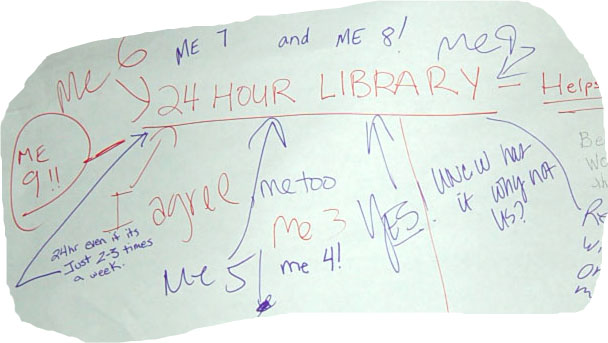 me 6
ME 7 and ME 8!
me 9
24 HOUR LIBRARY - Help
ME
9!!
I agree
me too
me 3
me 4!
Me 5
YES!
UNCW has
it why not
us?
24hr even if its
Just 2-3 times
a week.
Be
We